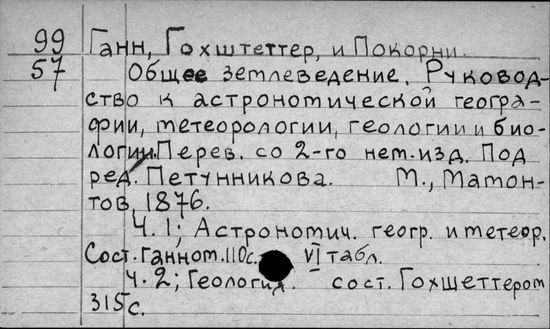 99 Ганн, Гохштеттер, и Покорни.
57 Общее землеведение. Руковод-
ство к астрономической геогра-
фии, метеорологии, геологии и био-
логии. Перев. со 2-го нем. изд. Под
ред. Петунникова. М., Мамон-
тов, 1876.
Ч. 1; Астрономич. геогр. и метеор.
Сост. Ганном. 110с. VI табл.
Ч. 2; Геология. сост. Гохшеттером
315 с.